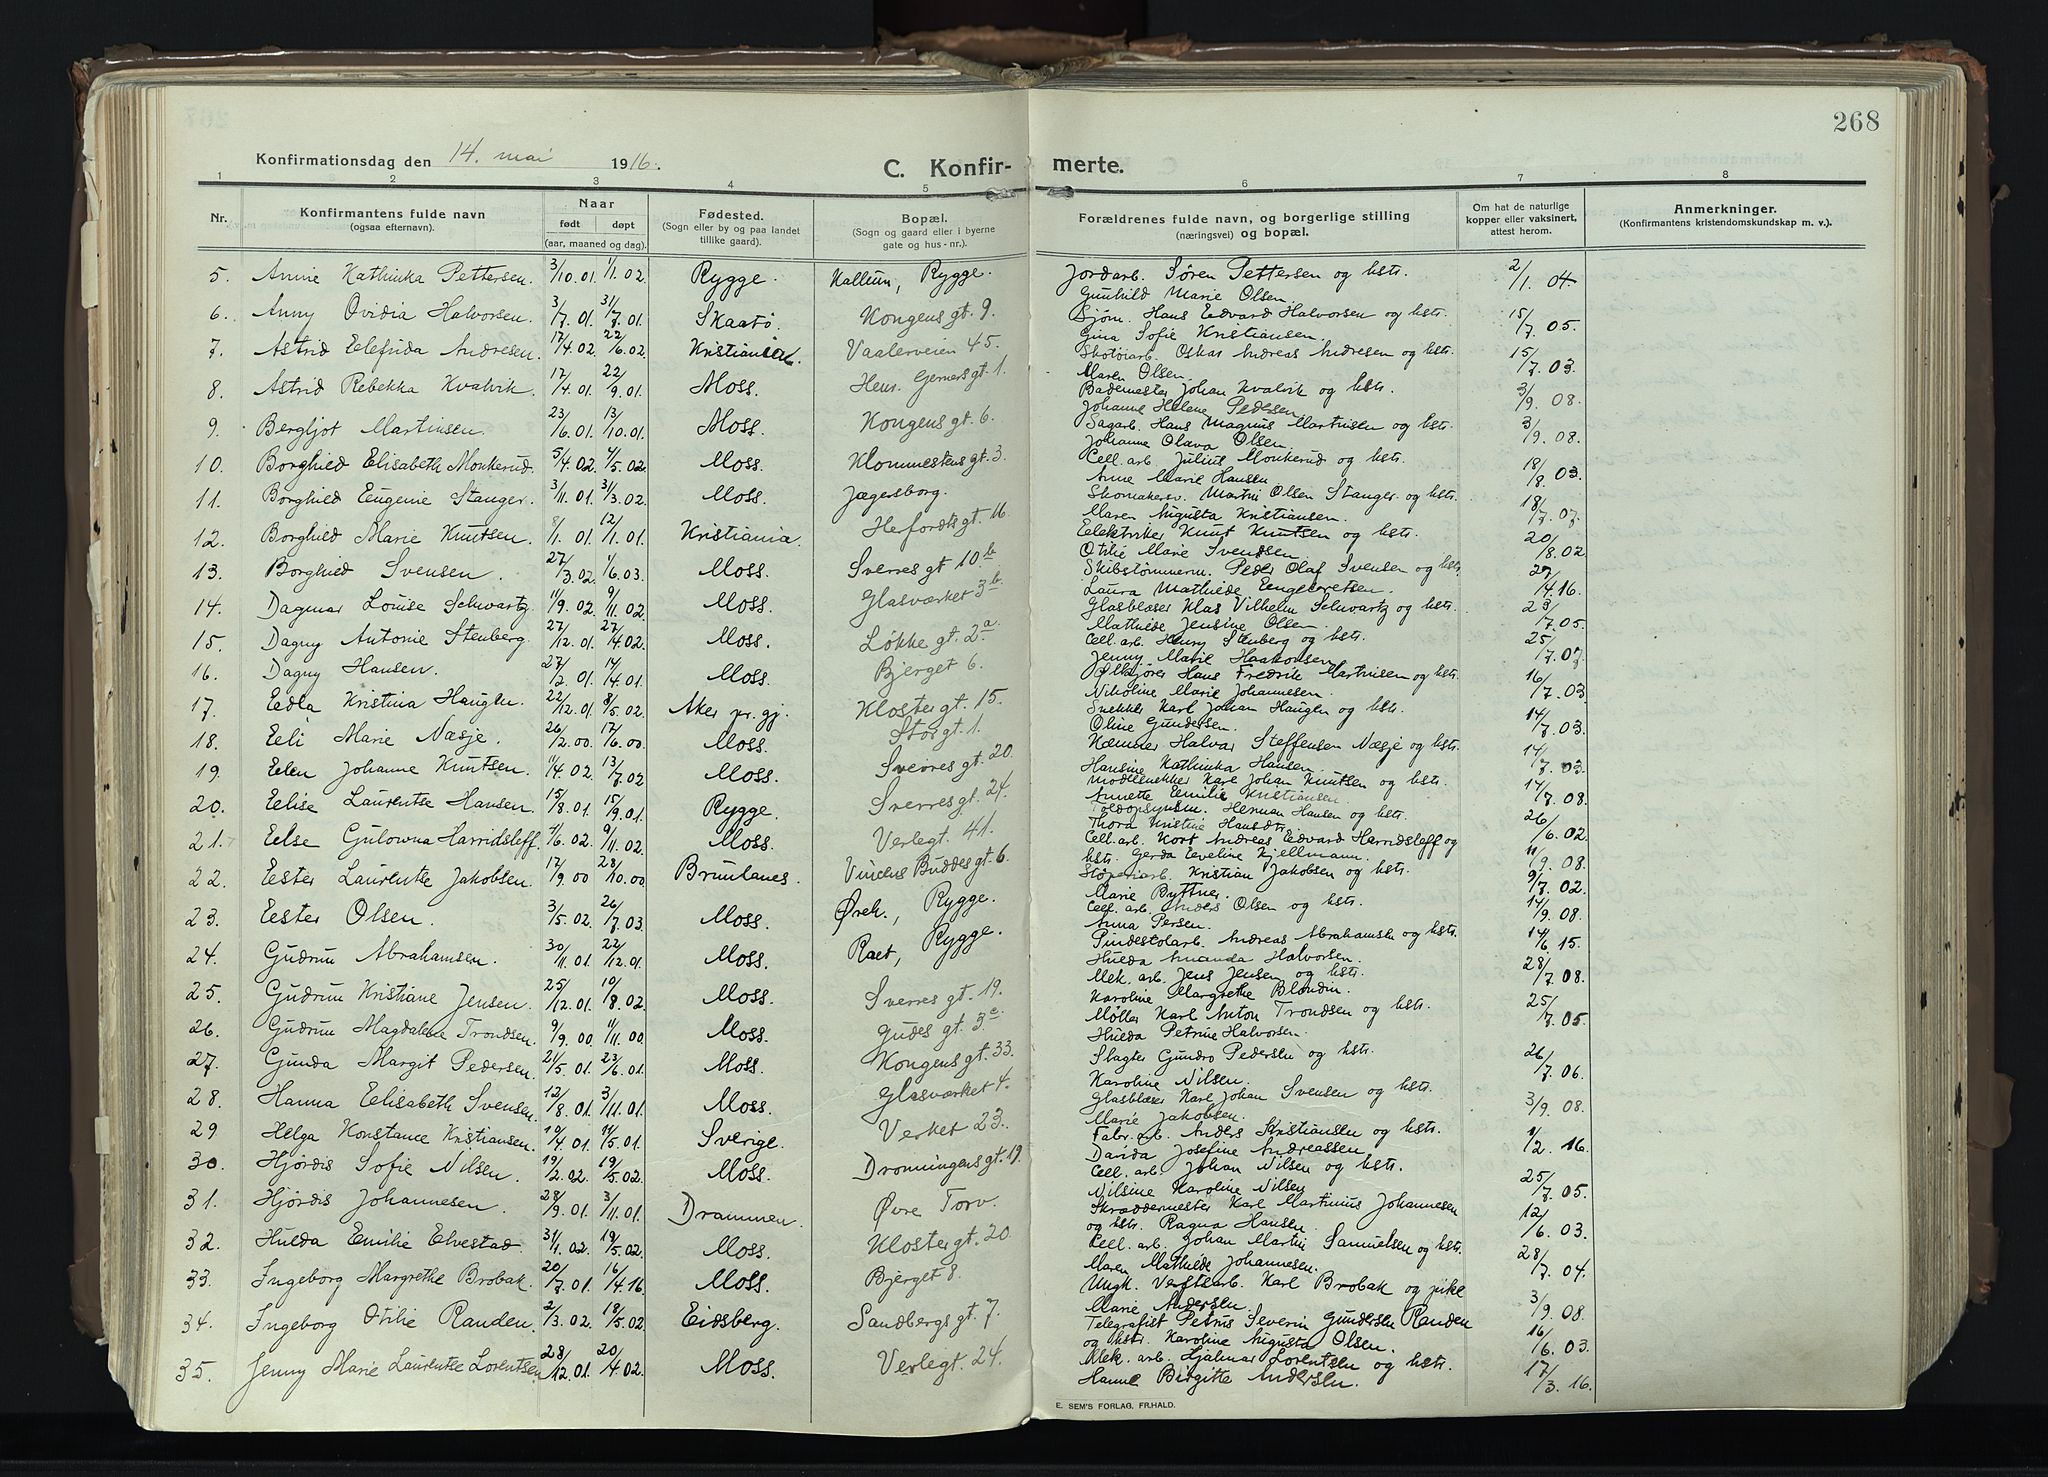 268
Konfirmationsdag den 14. mai 1916.
C. Konfirmerte.
1 2 3 4 5 6 7 8
Nr. Konfirmantens fulde navn (ogsaa efternavn). Naar født døpt (aar, maaned og dag). Fødested. (Sogn eller by og paa landet tillike gaard). Bopæl. (Sogn og gaard eller i byerne gate og hus-nr.). Forældrenes fulde navn, og borgerlige stilling (næringsvei) og bopæl. Om hat de naturlige kopper eller vaksinert, attest herom. Anmerkninger. (Konfirmantens kristendomskundskap m. v.).
5. Annie Kathinka Pettersen. 3/10.01. 1/1.02. Rygge. Kallum, Rygge. Jordarb. Søren Pettersen og hstr. 2/1.04.
Gunhild Marie Olsen.
6. Anny Ovidia Halvorsen. 3/7.01. 31/7.01. Skaatø. Kongensgt. 9. Sjøm. Hans Edvard Halvorsen og hstr. 15/7.05.
Gina Sofie Kristiansen.
7. Astrid Elefrida Andresen. 17/4.02. 22/6.02. Kristiania. Vaalerveien 45. Skotøiarb. Oskar Andreas Andresen og hstr. 15/7.03.
Maren Olsen.
8. Astrid Rebekka Kvalvik. 17/4.01. 22/9.01. Moss. Henr. Gernersgt. 1. Bademester Johan Kvalvik og hstr. 3/9.08.
Johanne Helene Pedersen.
9. Bergljot Martinsen. 23/6.01. 13/10.01. Moss. Kongensgt. 6. Sagarb. Hans Magnus Martinsen og hstr. 3/9.08.
Johanne Olava Olsen.
10. Borghild Elisabeth Monkerud. 5/4.02. 4/5.02. Moss. Klommestensgt. 3. Cell. arb. Julius Monkerud og hstr. 18/8.03.
Anne Marie Hansen
11. Borghild Eugenie Stanger. 3/11.01. 31/3.02. Moss. Jægersborg. Skomakersv. Martin Olsen Stanger og hstr. 18/7.07.
Maren Augusta Kristiansen.
12. Borghild Marie Knutsen. 8/1.01. 12/1.01. Kristiania. Hefordtsgt. 16. Elektriker Knut Knutsen og hstr. 20/8.02
Otilie Marie Svendsen.
13. Borghild Svensen. 27/3.02. 1/6.03. Moss. Sverresgt 10b Skibstømmerm. Peder Olaf Svensen og hstr. 27/4.16.
Laura Mathilde Engebretsen.
14. Dagmar Louise Schwartz. 11/9.02. 9/11.02. Moss. Glasværket 3b. Glasblæser Klas Vilhelm Schwartz og hstr. 23/7.05.
Mathilde Jensine Olsen.
15. Dagny Antonie Stenberg. 27/12.01. 27/4.02. Moss. Løkke gt. 2a. Cell. arb. Henry Stenberg og hstr. 25/7.07.
Jenny Marie Haakonsen.
16. Dagny Hansen. 27/2.01. 14/4.01. Moss. Bjerget 6. Ølkjører Hans Fredrik Martinsen og hstr. 16/7.03.
Nikoline Marie Johannesen.
17. Edla Kristina Haugen. 22/12.01. 8/5.02. Aker pr.gj. Klostergt. 15. Snekker Karl Johan Haugen og hstr. 14/7.03.
Oline Gundersen.
18. Eli Marie Næsje. 26/2.00. 17/6.00. Moss. Storgt. 1. Kæmner Halvar Steffensen Næsje og hstr. 14/7.03.
Hansine Kathinka Hansen.
19. Elen Johanne Knutsen. 11/4.02. 13/7.02 Moss. Sverresgt. 20. Modelsnekker Karl Johan Knutsen og hstr. 14/7.08.
Annette Emilie Kristiansen.
20. Elise Laurentse Hansen. 15/8.01. 15/9.01. Rygge. Sverresgt. 24. Toldopsynsm. Herman Hansen og hstr. 26/6.02.
Thora Kristine Hansdtr.
21. Else Gulowna Harridsleff. 4/6.02. 9/11.02. Moss. Verlegt. 41. Cell. arb. Kort Andreas Edvard Harridsleff og 11/9.08.
hstr. Gerda Eveline Kjellmann.
22. Ester Laurentse Jakobsen. 17/9.00 28/10.00. Brunlanes. Vincens Buddesgt. 6 Støperiarb. Kristian Jakobsen og hstr. 9/7.02.
Marie Byttner.
23. Ester Olsen. 3/5.02 26/7.03. Moss. Ørek., Rygge. Cell. arb. Anders Olsen og hstr. 14/9.08.
Anna Persen.
24. Gudrun Abrahamsen. 30/11.01. 22/12.01. Moss. Raet, Rygge. Pindestolarb. Andreas Abrahamsen og hstr. 14/6.15.
Hulda Amanda Halvorsen.
25. Gudrun Kristiane Jensen. 25/12.01. 10/8.02. Moss. Sverresgt. 19. Mek. arb. Jens Jensen og hstr. 28/7.08.
Karoline Margrethe Blondin.
26. Gudrun Magdalena Trondsen. 9/9.00. 11/11.00. Moss. Gudes gt. 3c. Møller Karl Anton Trondsen og hstr. 25/7.05.
Hulda Petrine Halvorsen.
27. Gunda Margit Pedersen. 21/5.01. 23/6.01. Moss. Kongensgt. 33. Slagter Gundro Pedersen og hstr. 26/7.06.
Karoline Nilsen.
28. Hanna Elisabeth Svensen. 12/8.01. 3/11.01. Moss. Glasværket 4. Glasblæser Karl Johan Svensen og hstr. 3/9.08.
Marie Jakobsen.
29. Helga Konstance Kristiansen. 10/4.01. 11/5.01. Sverige. Verket 23. Fabr. arb. Anders Kristiansen og hstr. 1/2.16.
Davida Josefine Andreassen.
30. Hjørdis Sofie Nilsen. 19/2.02. 19/5.02. Moss. Dronningensgt. 19. Cell. arb. Johan Nilsen og hstr. 25/7.05.
Nilsine Karoline Nilsen
31. Hjørdis Johannesen. 28/9.01. 3/11.01. Drammen. Øvre Torv. Skræddermester Karl Martinius Johannesen 12/6.03.
og hstr. Ragna Hansen.
32. Hulda Emilie Elvestad. 31/1.02. 19/5.02. Moss. Klostergt. 20 Cell. arb. Johan Martin Samuelsen og hstr. 28/7.04.
Maren Mathilde Johannesen.
33. Ingeborg Margrethe Brobak. 20/7.01. 16/4.16 Moss. Bjerget 8. Ungk. Verftsarb. Karl Brobak og pike 3/9.08.
Marie Andersen.
34. Ingeborg Otilie Randen. 2/3.02. 18/5.02. Eidsberg. Sandbergsgt. 7 Telegrafist Petrus Severin Gundersen Randen 16/6.03.
og hstr. Karoline Augusta Olsen.
35. Jenny Marie Laurentse Lorentsen. 28/12.01. 20/4.02. Moss. Verlegt. 24. Mek. arb. Hjalmar Lorentsen og hstr. 17/3.16.
Hanne Birgitte Andersen.
E. SEM'S FORLAG, FR.HALD.